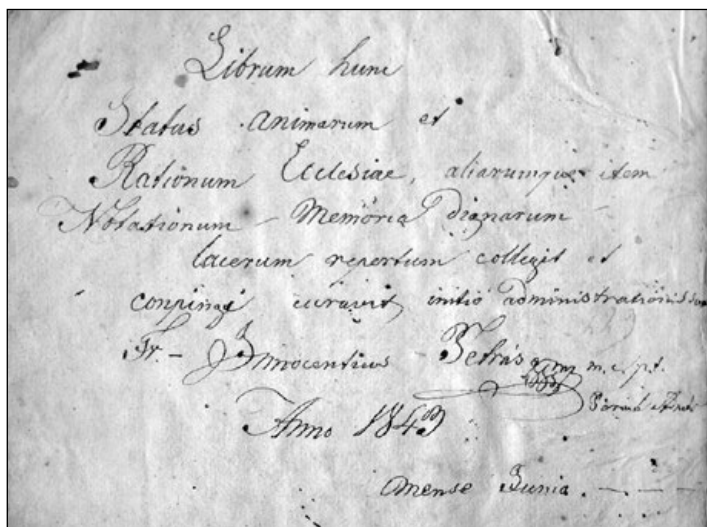 Librum hunc
Status animarum et
Rationum Ecclesiae, aliarumque item
Notationum Memoria dignarum
lacerum repertum collegit et
curavit, initio administrationis
Fr. Innocentius Petrás m.p.
Anno 1843
mense Junio